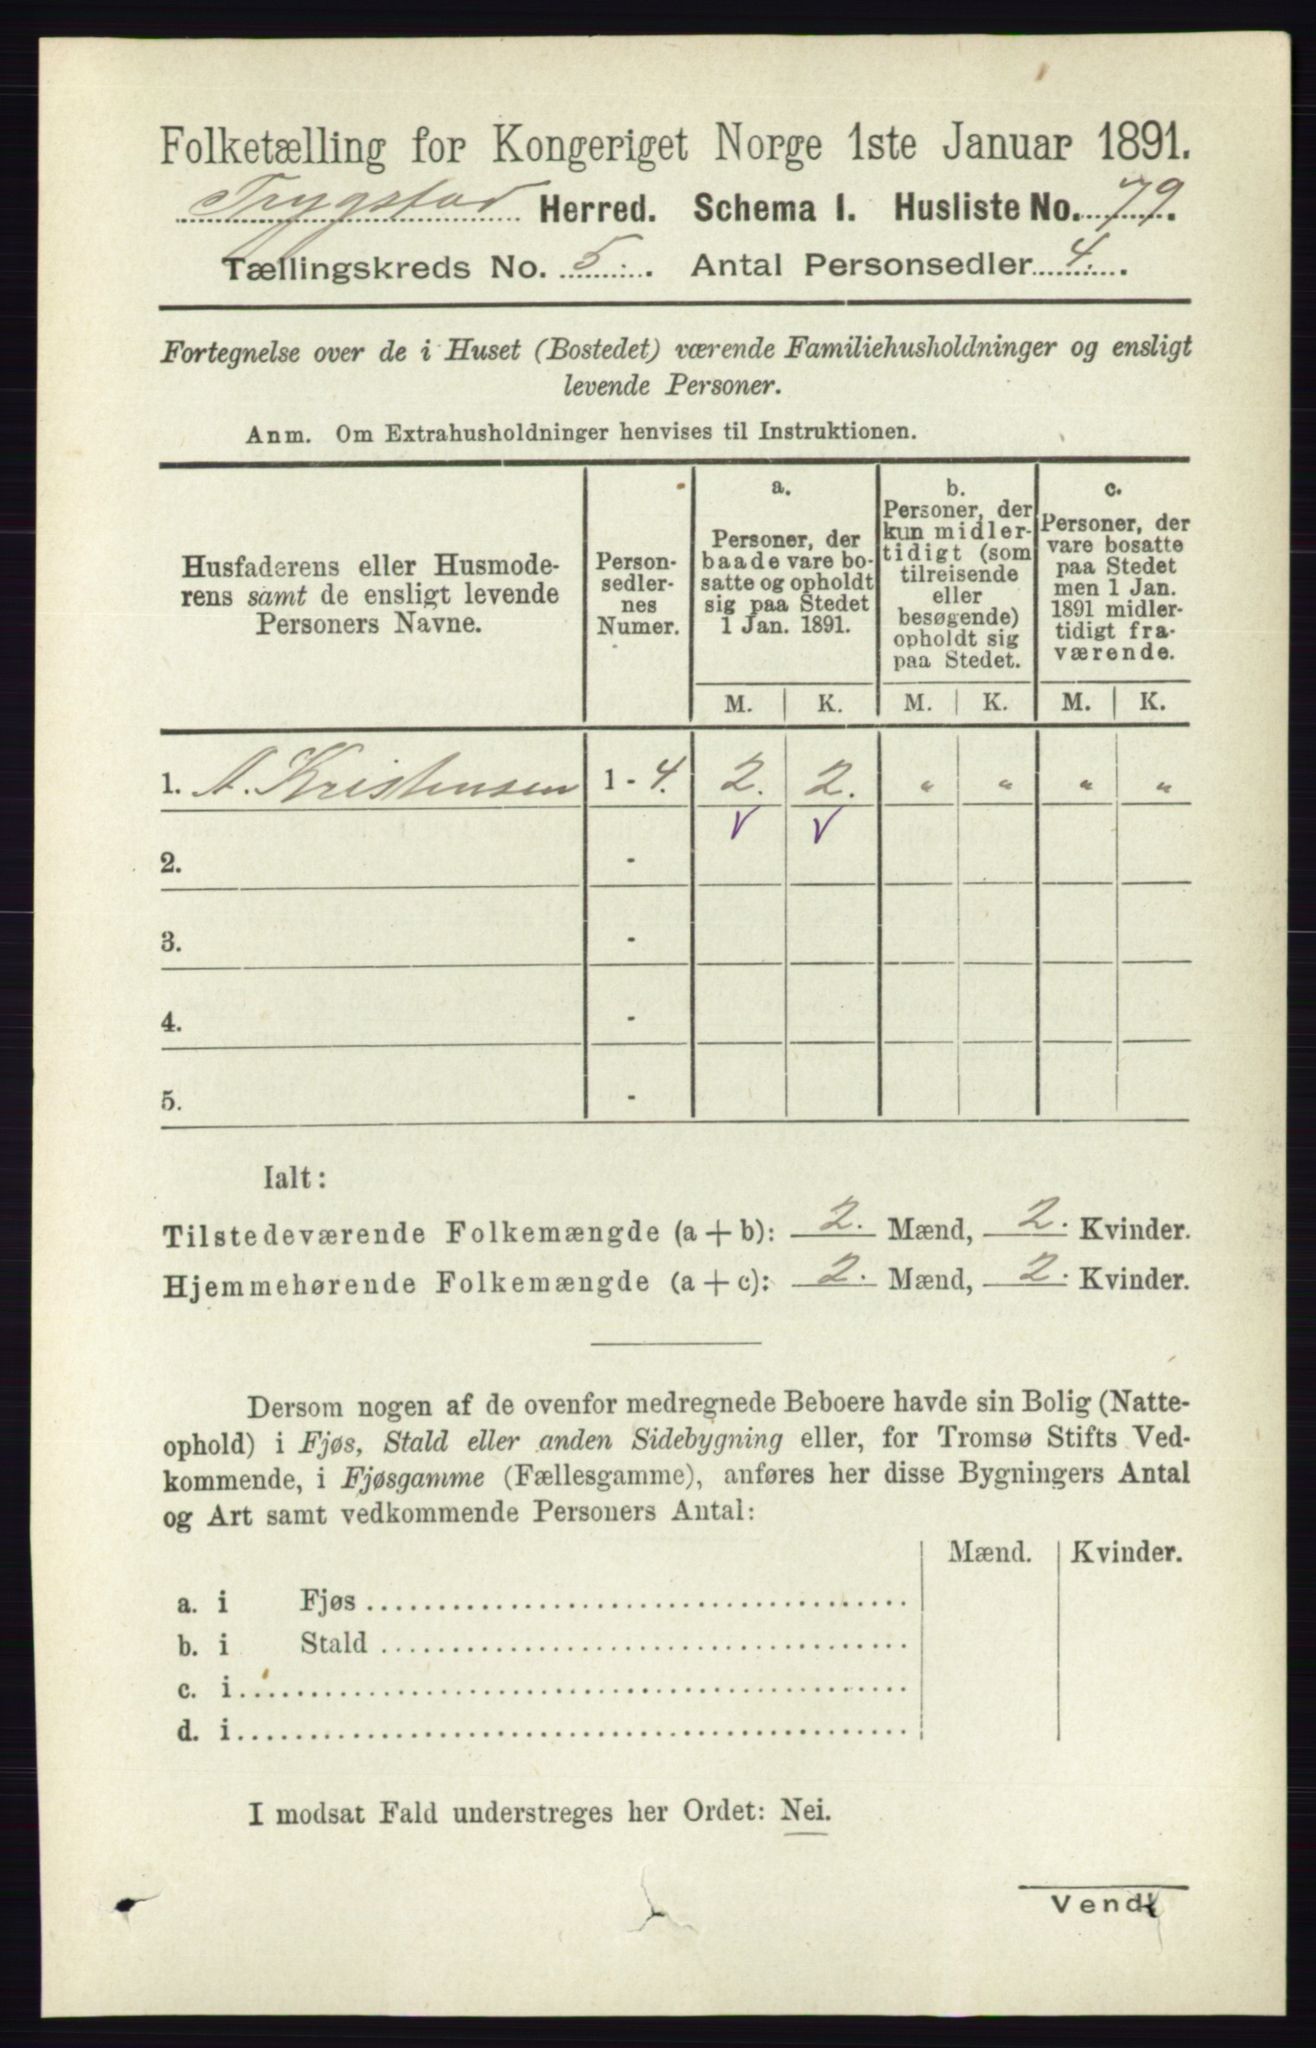 Folketælling for Kongeriget Norge 1ste Januar 1891.
Trygstad Herred. Schema I. Husliste No. 79.
Tællingskreds No. 5. Antal Personsedler 4.
Fortegnelse over de i Huset (Bostedet) værende Familiehusholdninger og ensligt
levende Personer.
Anm. Om Extrahusholdninger henvises til Instruktionen.
Husfaderens eller Husmode-
rens samt de ensligt levende
Personers Navne.
Person-
sedler-
nes
Numer.
a.
Personer, der
baade vare bo-
satte og opholdt
sig paa Stedet
1 Jan. 1891.
b.
Personer, der
kun midler-
tidigt (som
tilreisende
eller
besøgende)
opholdt sig
paa Stedet.
c.
Personer, der
vare bosatte
paa Stedet
men 1 Jan.
1891 midler-
tidigt fra-
værende.
M. K. M. K. M. K.
1. A. Kristensen 1 - 4. 2. 2. " " " "
2. -
3. -
4. -
5. -
Ialt:
Tilstedeværende Folkemængde (a + b): 2. Mænd, 2. Kvinder.
Hjemmehørende Folkemængde (a + c): 2. Mænd, 2. Kvinder.
Dersom nogen af de ovenfor medregnede Beboere havde sin Bolig (Natte-
ophold) i Fjøs, Stald eller anden Sidebygning eller, for Tromsø Stifts Ved-
kommende, i Fjøsgamme (Fællesgamme), anføres her disse Bygningers Antal
og Art samt vedkommende Personers Antal:
Mænd. Kvinder.
a. i Fjøs
b. i Stald
c. i
d. i
I modsat Fald understreges her Ordet: Nei.
Vend!